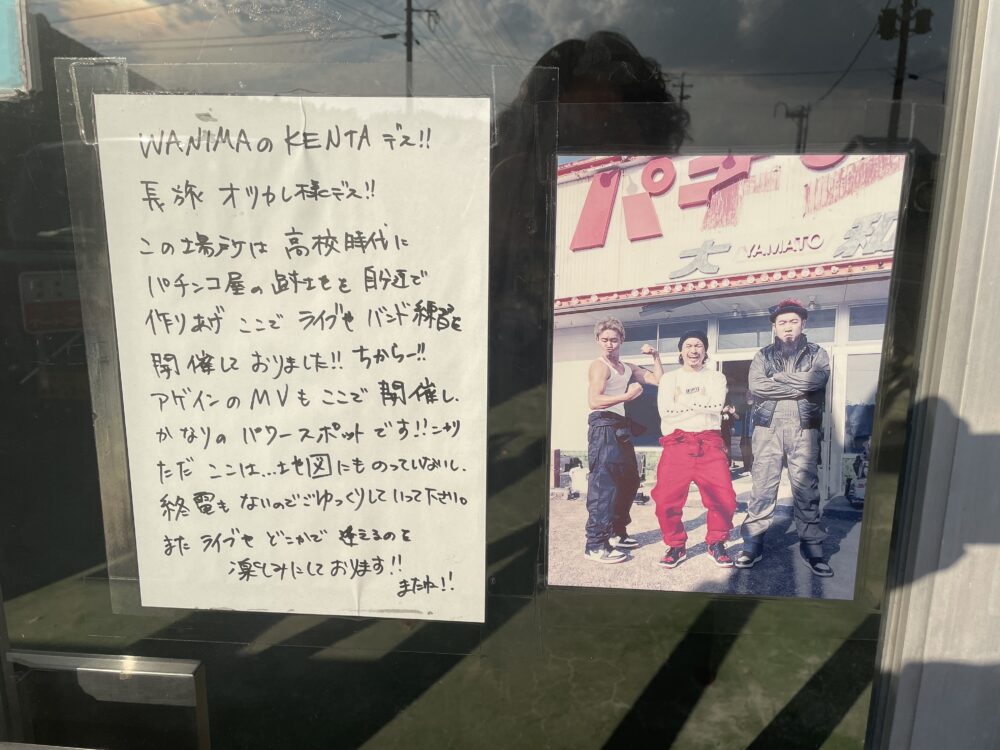 WANIMAのKENTAデス!!
長旅 オツカレ様デス!!
この場所は 高校時代に
パチンコ屋の 跡地を 自分達で
作りあげ ここで ライブや バンド練習を
開催して おりました!! ちからー!!
アゲインのMVもここで開催し、
かなりの パワースポットです!!ニヤリ
ただ ここは...地図にものっていないし、
終電も ないのでごゆっくりしていって下さい。
また ライブや どこかで 逢えるのを
楽しみにしております!!
またね!!
パチ
大 YAMATO 和